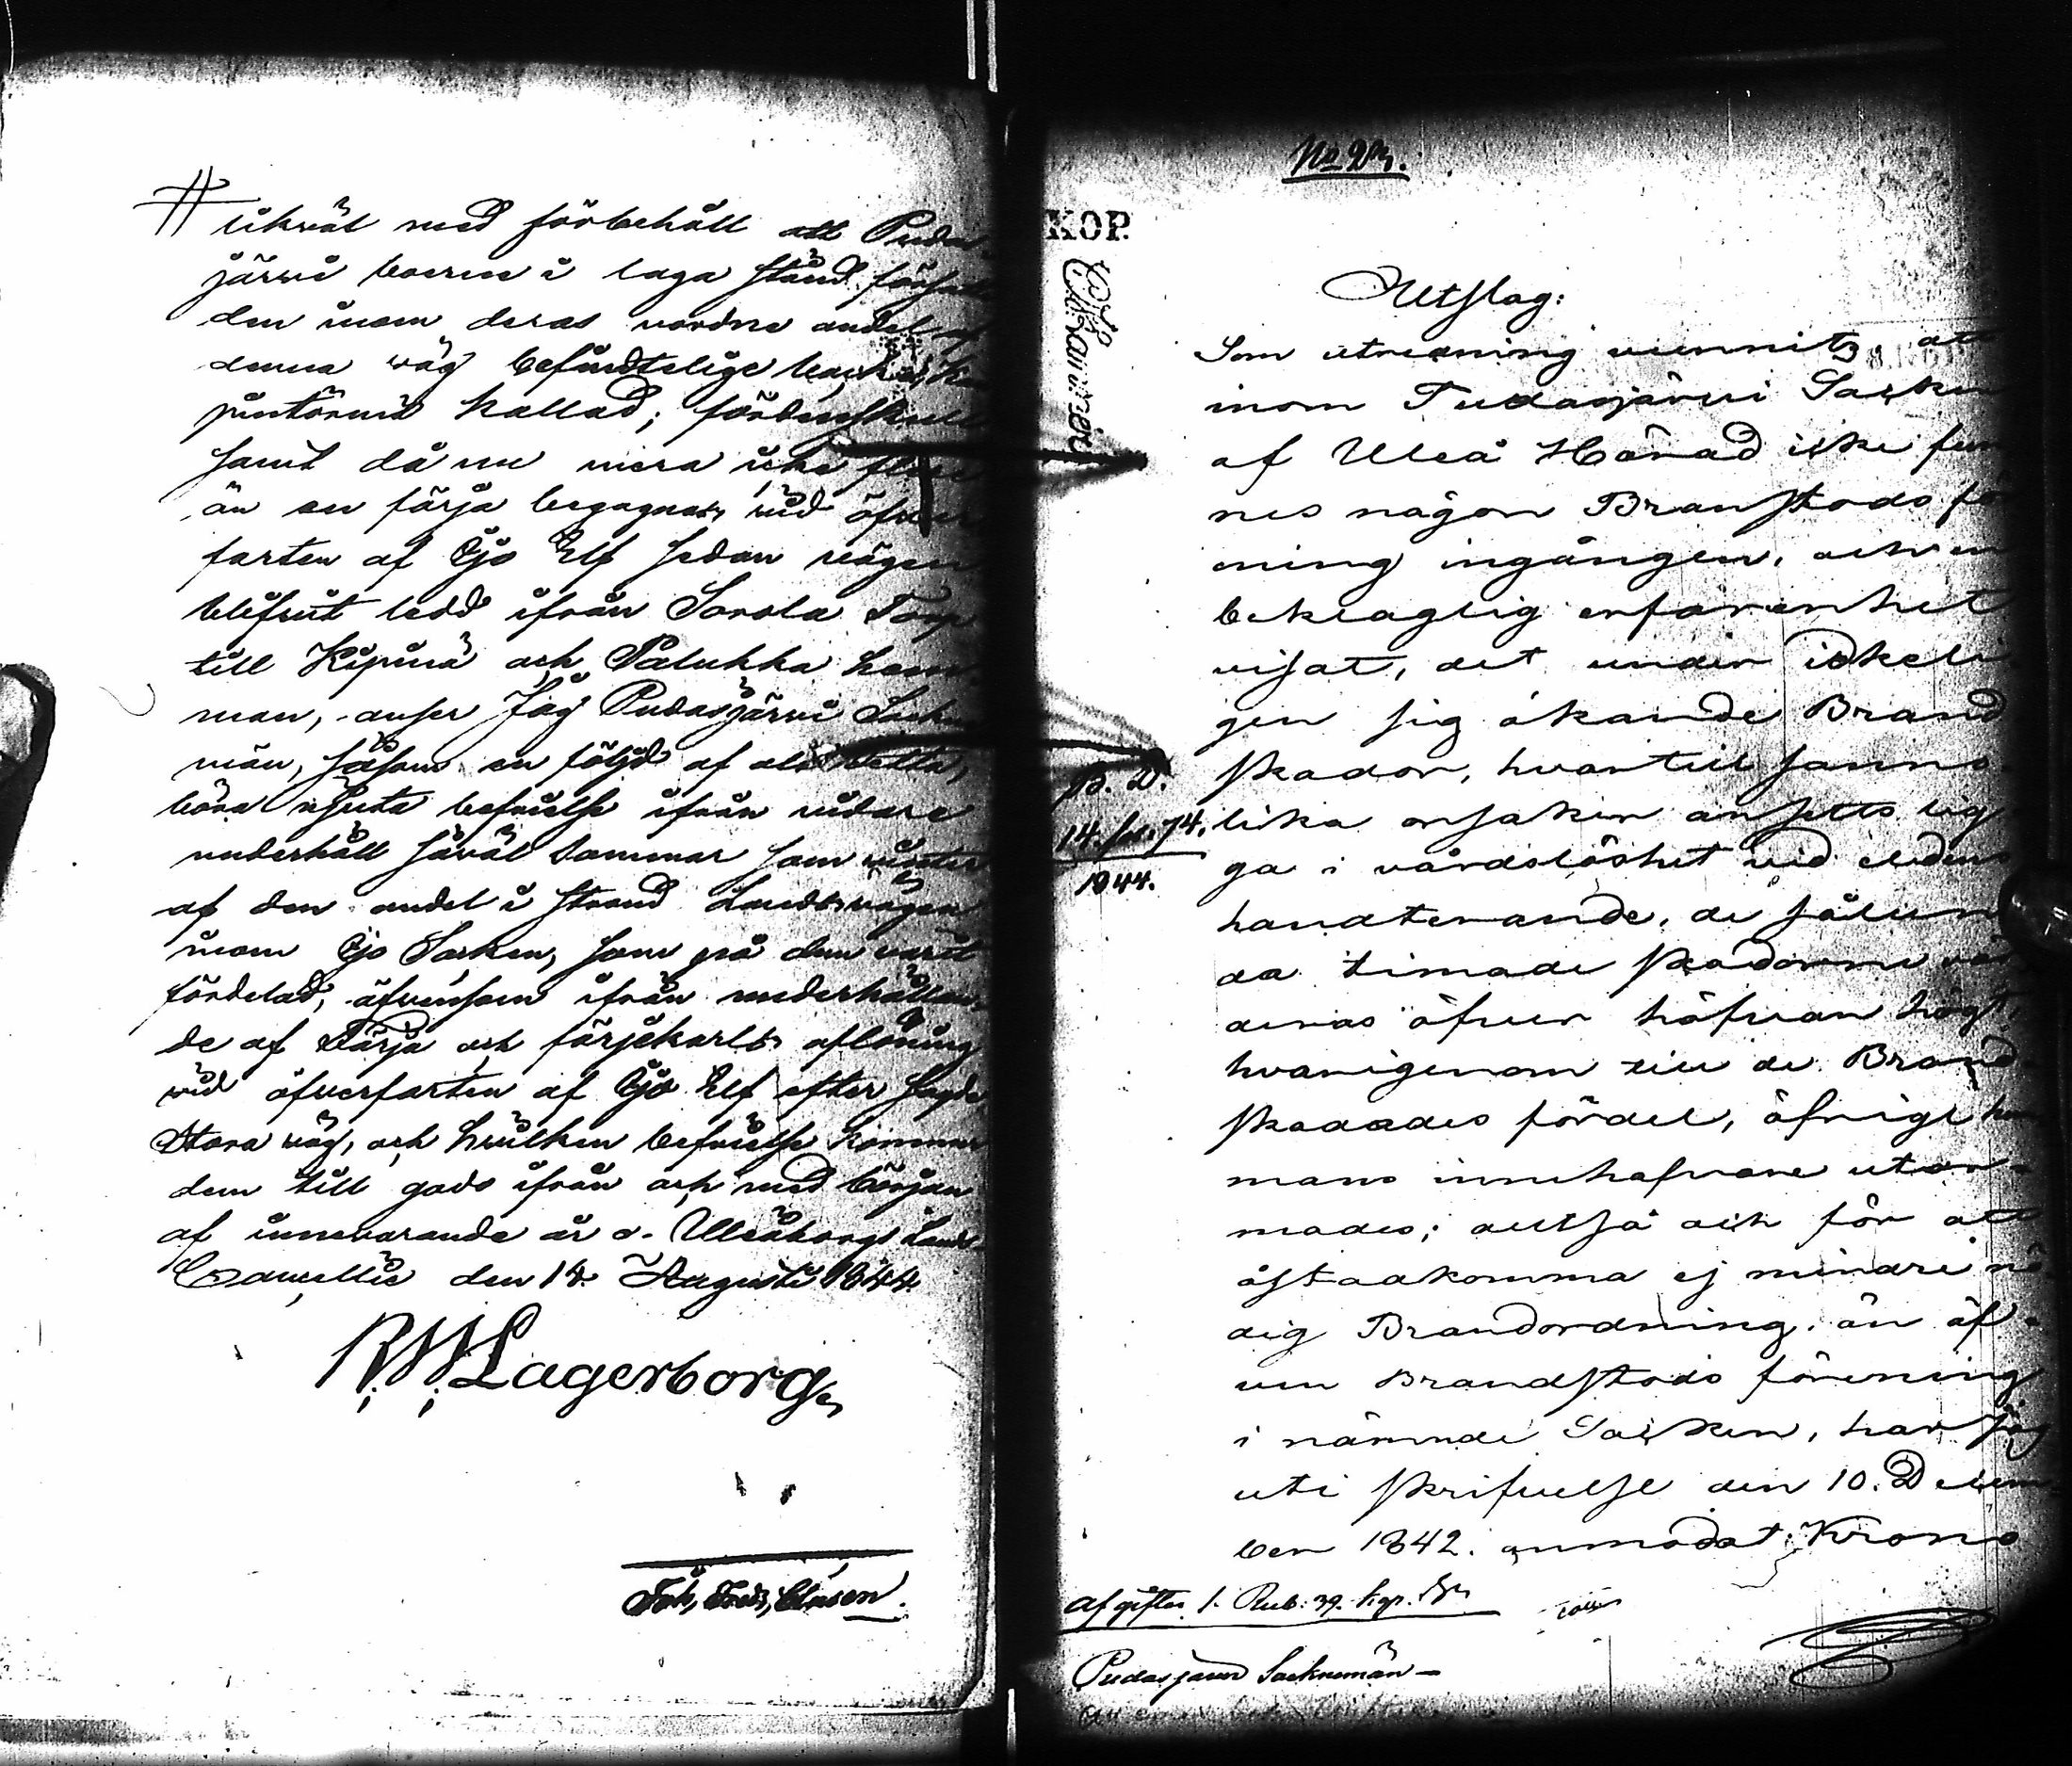 likväl med förbehåll att Pudas-
järvi boerne i laga stånd försätta
den inom deras vordne andel af
denna väg befindtelige backa,
kallad; fördenskull
samt då nu mera icke flere
än en färja begagnas vid öfver
farten af Ijo Elf sedan vägen
blifvit ledd ifrån Sorola Torp
till Kipinä och Palukka hem-
man, anser Jag Pudasjärvi Sockne
män, såsom en följd af allt detta,
böra njuta befrielse ifrån vidare
underhåll såväl sommar som vinter
af den andel i strand Landsvägen
inom Ijo Socken, som på dem varit
fördelad, äfvensom ifrån underhållan-
de af Färja och färjekarls aflöning
vid öfverfarten af Ijo Elf efter sagde
stora väg, och hvilken befrielse kommer
dem till godo ifrån och med början
af innevarande år o. Uleåborgs Lands-
Cancellie den 14. Augusti 1844.
RWLagerborg
Joh, Fredr, Clasen.
No 23.
KOP.
Utslag:
Som utredning vunnits, att
inom Pudasjärvi Socken
af Uleå Härad icke fin
nes någon Branstods för
ning ingången, och en
beklaglig erfarenhet
visat, det under idkeli-
gen sig ökande Brand
skador, hvartill sanno-
lika orsaken ansetts lig
ga i vårdslöshet vid eldens
handterande, de sålun
da timade skadorne vär
deras öfver höfvan högt,
hvarigenom till de Brand-
skadades fördel, öfrige hem
mans innehafvare utar-
mades; altså och för att
åstadkomma ej mindre nö
dig Brandordning, än äf-
ven Brandstods förening
i nämnde Socken, har Jag
uti skrifvelse den 10. Decem
ber 1842. anmodat Krono
B. D.
14. 74.
1844.
Afgifter 1. Rub: 39. kop. Sr
Pudasjärvi Socknemän